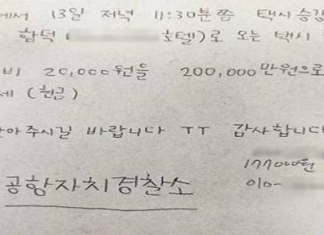 에서 13일 저녁 11:30분쯤 택시 승강
함덕 ( 호텔)로 오는 택시
비 20,000원을 200,000만원으로
세 (현금)
아주시길 바랍니다 TT 감사합니다
17700원
공항자치경찰소 010-